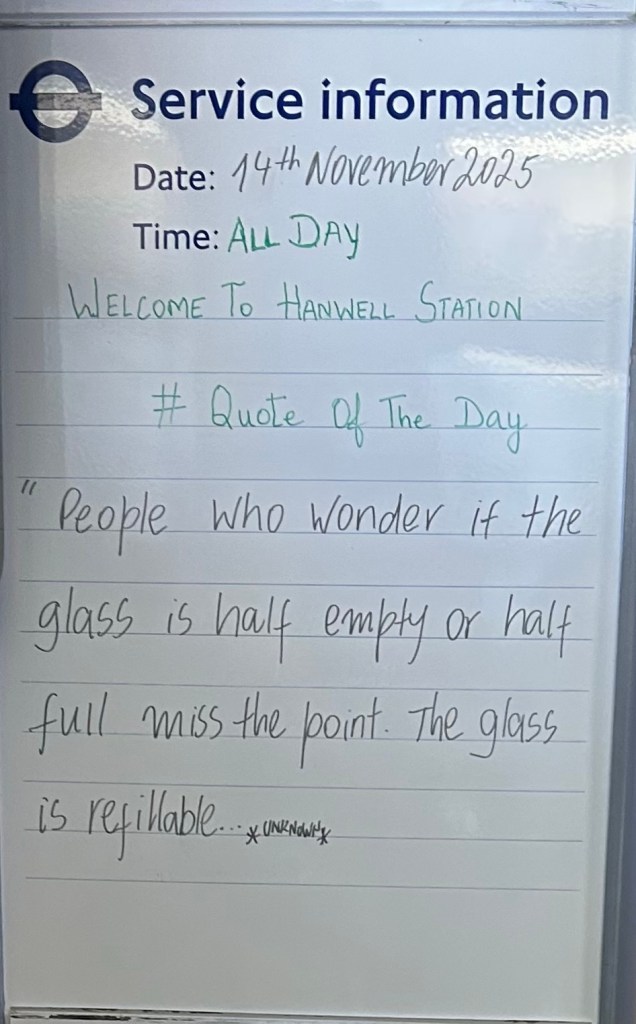 Service information
Date: 14th November 2025
Time: ALL DAY
WELCOME TO HANWELL STATION
# Quote Of The Day
" People who wonder if the
glass is half empty or half
full miss the point. The glass
is refillable... *UNKNOWN*